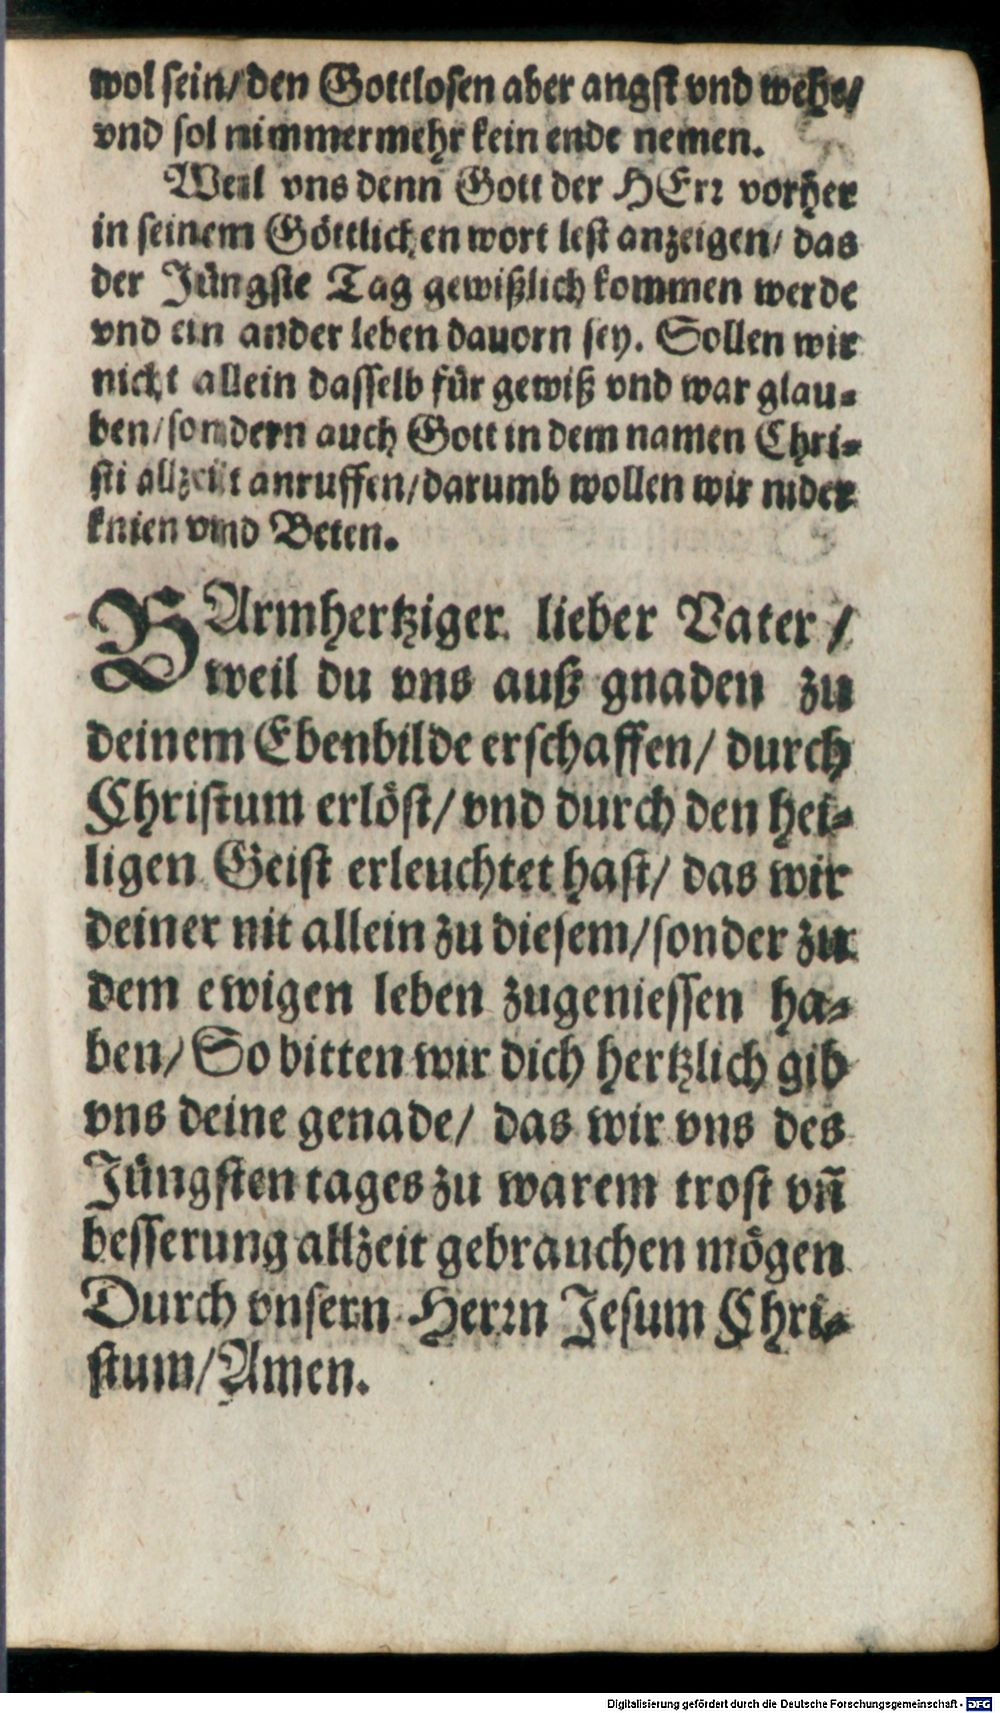 wol sein/ den Gottlosen aber angst vnd wehe/
vnd sol nimmermehr kein ende nemen.
Weil vns denn Gott der HErr vorher
in seinem Göttlichen wort lest anzeigen/ das
der Jüngste Tag gewißlich kommen werde
vnd ein ander leben dauorn sey. Sollen wir
nicht allein dasselb für gewiß vnd war glau-
ben/ sondern auch Gott in dem namen Chri-
sti allzeit anruffen/ darumb wollen wir nider
knien vnd Beten.
BArmhertziger lieber Vater/
weil du vns auß gnaden zu
deinem Ebenbilde erschaffen/ durch
Christum erlöst/ vnd durch den hei-
ligen Geist erleuchtet hast/ das wir
deiner nit allein zu diesem/ sonder zu
dem ewigen leben zugeniessen ha-
ben/ So bitten wir dich hertzlich gib
vns deine genade/ das wir vns des
Jüngsten tages zu warem trost vn̄
besserung allzeit gebrauchen mögen
Durch vnsern Herrn Jesum Chri-
stum/ Amen.
Digitalisierung gefördert durch die Deutsche Forschungsgemeinschaft - DFG